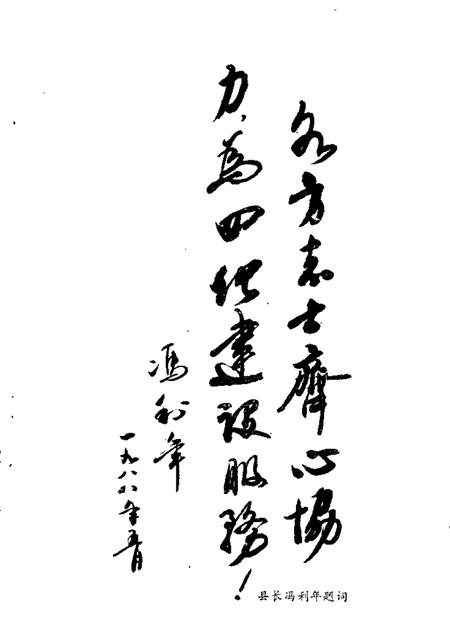 各方志士齊心協
力,為四化建设服務!
馮利年
一九八八年五月
县长冯利年题词